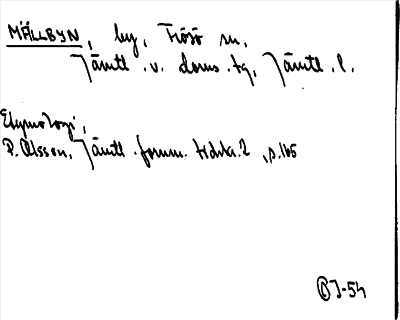 MÄLLBYN, by, Frösö sn,
Jämtl. v. doms. tg, Jämtl. l.
Etymologi,
P. Olsson, Jämtl. fornm. tidskr. 2, s. 165